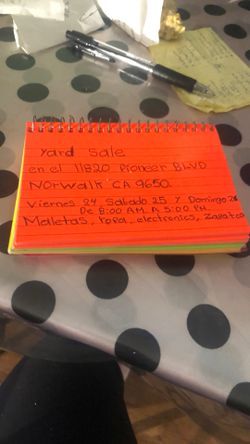 Yard Sale
en el 11820 Pioneer BLVD
Norwalk CA 9650
Viernes 24 Sabado 25 Y Domingo 26
De 8:00 AM A 5:00 PM
Maletas, Ropa, electronics, Zapatos